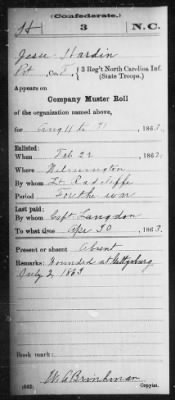 (Confederate.)
H 3 N.C.
Jesse Hardin
Pvt, Co. F, 3 Reg't North Carolina Inf.
(State Troops.)
Appears on
Company Muster Roll
of the organization named above,
for Aug 11 to 31, 1863.
Enlisted:
When Feb 22, 1863.
Where Wilmington
By whom Lt. Radcliffe
Period For the war
Last paid:
By whom Capt Langdon
To what time Apr 30, 1863.
Present or absent Absent
Remarks: Wounded at Gettysburg
July 2, 1863
Book mark:
W A Brinkman
(642) Copyist.